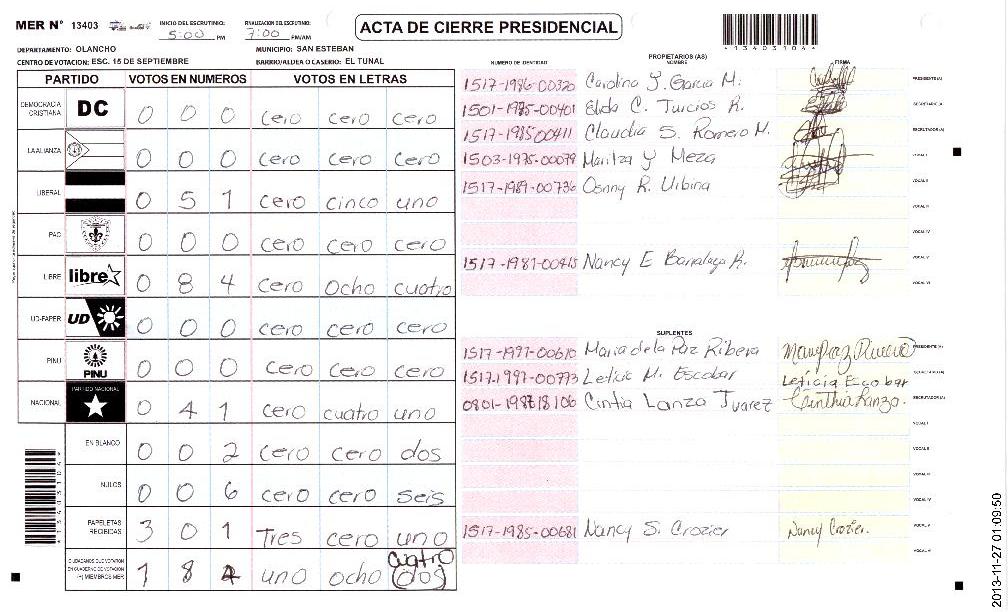 MER N° 13403 INICIO DEL ESCRUTINIO: 5:00 PM FINALIZACION DEL ESCRUTINIO: 7:00 PM/AM
ACTA DE CIERRE PRESIDENCIAL
DEPARTAMENTO: OLANCHO MUNICIPIO: SAN ESTEBAN
CENTRO DE VOTACION: ESC. 15 DE SEPTIEMBRE BARRIO/ALDEA O CASERIO: EL TUNAL
PARTIDO VOTOS EN NUMEROS VOTOS EN LETRAS
DEMOCRACIA CRISTIANA DC 0 0 0 cero cero cero
LA ALIANZA 0 0 0 cero cero cero
LIBERAL 0 5 1 cero cinco uno
PAC 0 0 0 cero cero cero
LIBRE libre 0 8 4 cero ocho cuatro
UD-FAPER UD 0 0 0 cero cero cero
PINU PINU 0 0 0 cero cero cero
NACIONAL PARTIDO NACIONAL 0 4 1 cero cuatro uno
EN BLANCO 0 0 2 cero cero dos
NULOS 0 0 6 cero cero seis
PAPELETAS RECIBIDAS 3 0 1 Tres cero uno
CIUDADANOS QUE VOTARON EN CUADERNO DE VOTACION (+) MIEMBROS MER 1 8 4 uno ocho cuatro (dos)
PROPIETARIOS (AS)
NUMERO DE IDENTIDAD NOMBRE FIRMA
1517-1986-00320 Carolina Y. Garcia M. PRESIDENTE(A)
1501-1975-00401 Elida C. Turcios R. SECRETARIO(A)
1517-1985-00411 Claudia S. Romero M. ESCRUTADOR(A)
1503-1975-00079 Maritza Y Meza VOCAL I
1517-1989-00736 Osnny R. Urbina VOCAL II
VOCAL III
VOCAL IV
1517-1981-00415 Nancy E Banalaga R. VOCAL V
VOCAL VI
SUPLENTES
1517-1997-00610 Maria de la Paz Ribera PRESIDENTE(A)
1517-1997-00773 Leticia M. Escobar Leticia Escobar SECRETARIO(A)
Cintia Lanza Juarez Cinthia Lanza. ESCRUTADOR(A)
VOCAL I
VOCAL II
VOCAL III
VOCAL IV
1517-1985-00681 Nancy S. Crozier Nancy Crozier. VOCAL V
VOCAL VI
2013-11-27 01:09:50